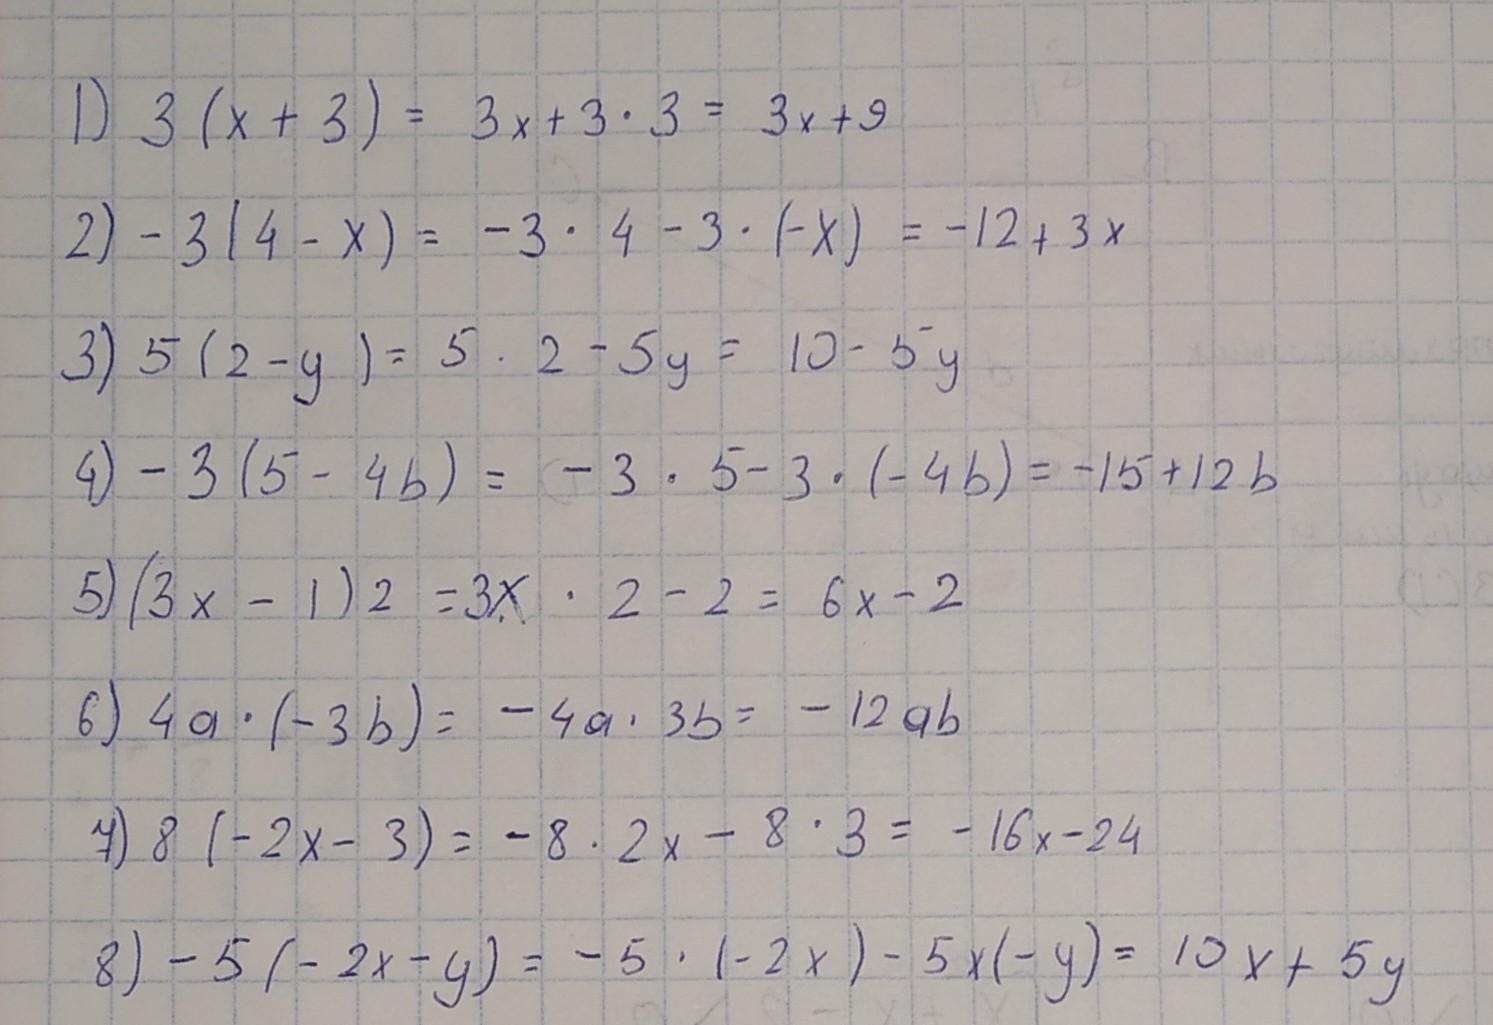 1) 3(x+3) = 3x+3·3 = 3x+9
2) -3(4-x) = -3·4-3·(-x) = -12+3x
3) 5(2-y) = 5·2-5y = 10-5y
4) -3(5-4b) = -3·5-3·(-4b) = -15+12b
5) (3x-1)2 = 3x·2-2 = 6x-2
6) 4a·(-3b) = -4a·3b = -12ab
7) 8(-2x-3) = -8·2x-8·3 = -16x-24
8) -5(-2x-y) = -5·(-2x)-5x(-y) = 10x+5y